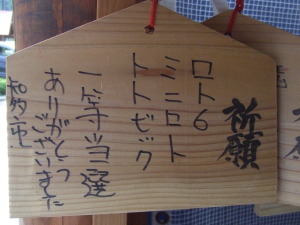 祈願
ロト6
ミニロト
トトビック
一等当選
ありがとう
ございました